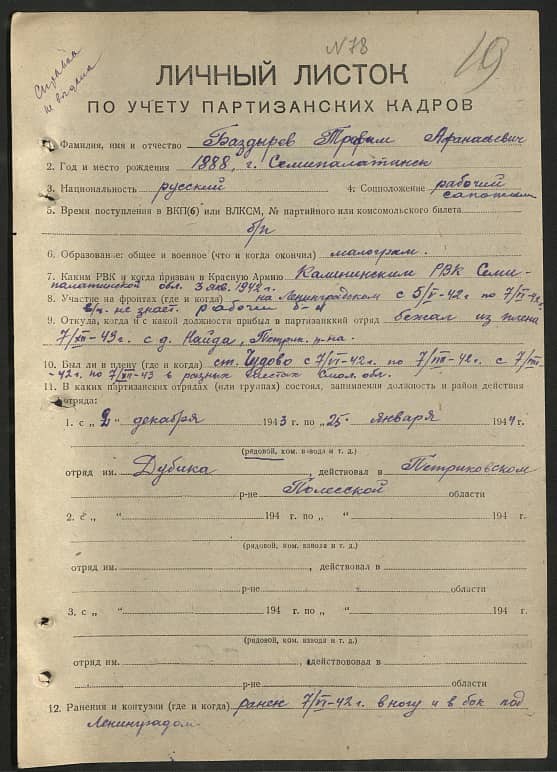 N78
19
Справка
не выдана
ЛИЧНЫЙ ЛИСТОК
ПО УЧЕТУ ПАРТИЗАНСКИХ КАДРОВ
1. Фамилия, имя и отчество Баздырев Трофим Афанасьевич
2. Год и место рождения 1888, г. Семипалатинск
3. Национальность русский 4. Соцположение рабочий
сапожник
5. Время поступления в ВКП(б) или ВЛКСМ, № партийного или комсомольского билета
б/п
6. Образование: общее и военное (что и когда окончил) малограм.
7. Каким РВК и когда призван в Красную Армию Калининским РВК Семи-
палатинской обл. 3 янв. 1942 г.
8. Участие на фронтах (где и когда) на Ленинградском с 5/V-42 г по 7/VI-42г.
в/ч. не знает. рабочий б-н
9. Откуда, когда и с какой должности прибыл в партизанский отряд бежал из плена
7/XII-43 г. с д. Найда, Петрик. р-на.
10. Был ли в плену (где и когда) ст. Чудово с 7/VI-42г. по 7/VIII-42 г. с 7/VIII
-42 г. по 7/XII-43 в разных местах Смол. обл.
11. В каких партизанских отрядах (или группах) состоял, занимаемая должность и район действия
отряда:
1. с „2“ декабря 1943 г. по „25“ января 1944 г.
(рядовой, ком. взвода и т. д.)
отряд им. Дубика, действовал в Петриковском
р-не Полесской области
2. с „ “ 194 г. по „ “ 194 г.
(рядовой, ком. взвода и т. д.)
отряд им. , действовал в
р-не области
3. с „ “ 194 г. по „ “ 194 г.
(рядовой, ком. взвода и т. д.)
отряд им. , действововал в
р-не области
12. Ранения и контузии (где и когда) ранен 7/VI-42 г. в ногу и в бок под
Ленинградом.